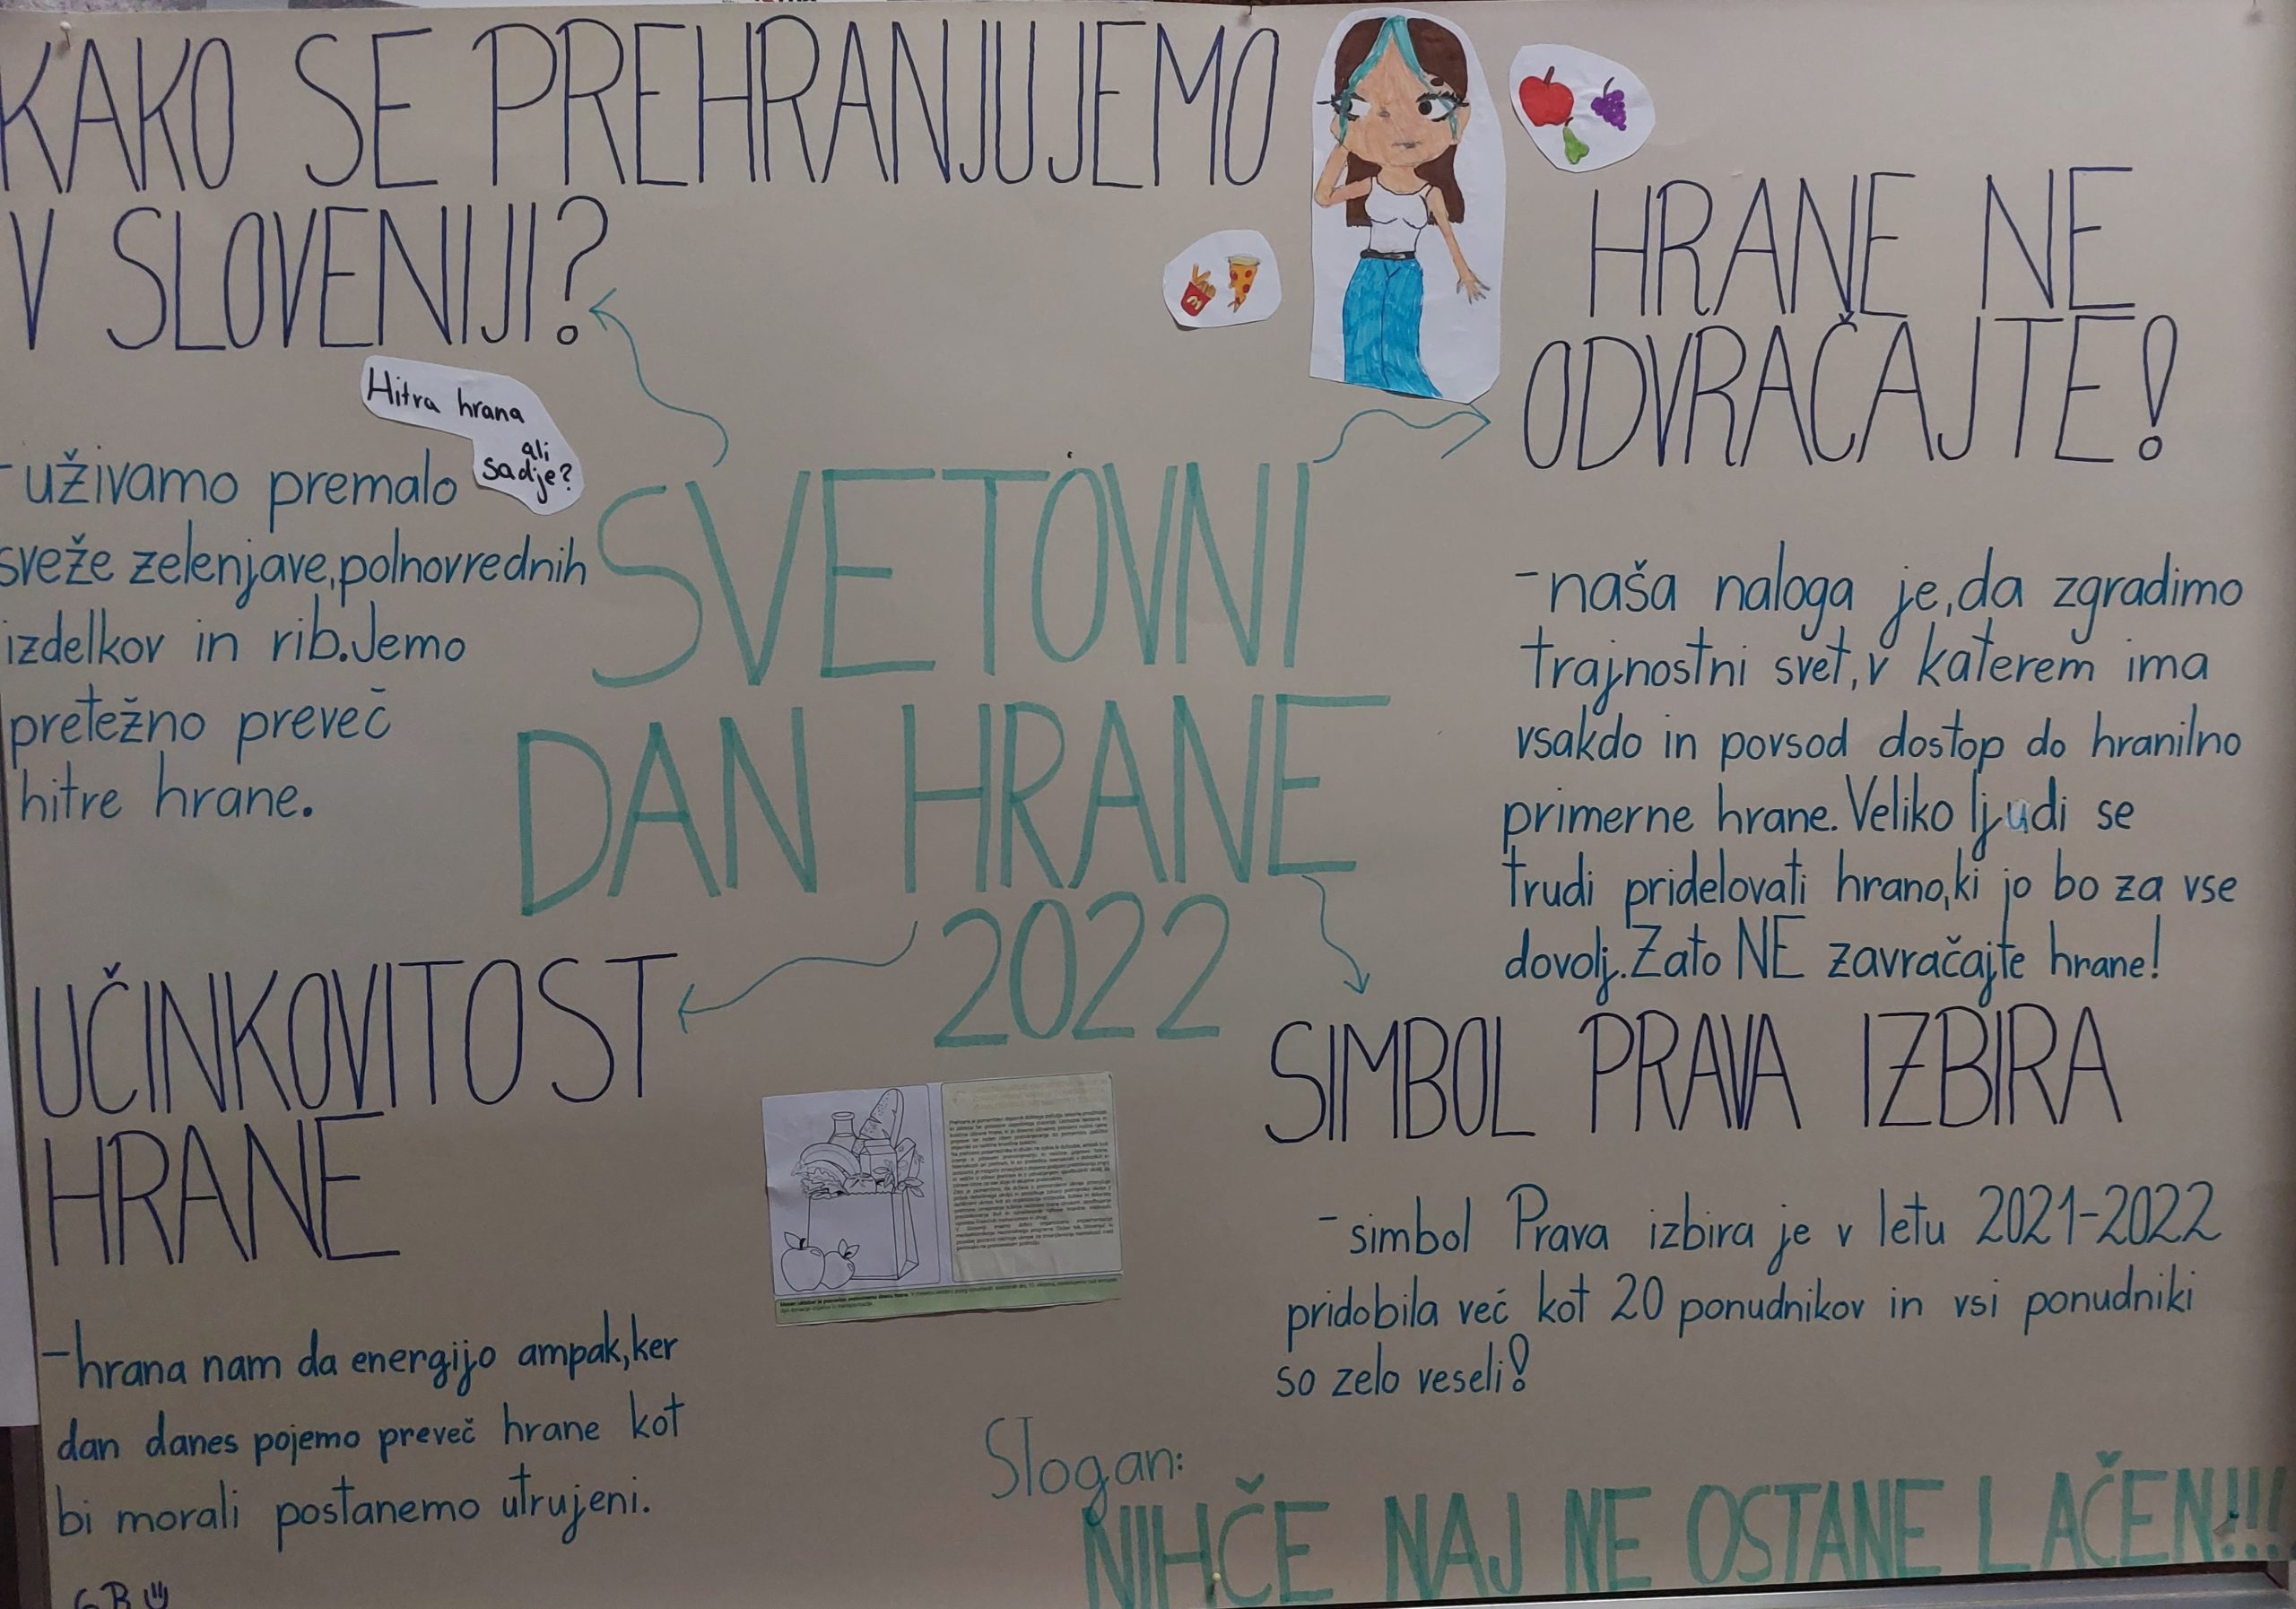 KAKO SE PREHRANJUJEMO
V SLOVENIJI?
Hitra hrana
ali
sadje?
-uživamo premalo
sveže zelenjave,polnovrednih
izdelkov in rib.Jemo
pretežno preveč
hitre hrane.
HRANE NE
ODVRAČAJTE!
-naša naloga je,da zgradimo
trajnostni svet,v katerem ima
vsakdo in povsod dostop do hranilno
primerne hrane.Veliko ljudi se
trudi pridelovati hrano,ki jo bo za vse
dovolj.Zato NE zavračajte hrane!
SVETOVNI
DAN HRANE
2022
UČINKOVITOST
HRANE
-hrana nam da energijo ampak,ker
dan danes pojemo preveč hrane kot
bi morali postanemo utrujeni.
SIMBOL PRAVA IZBIRA
-simbol Prava izbira je v letu 2021-2022
pridobila več kot 20 ponudnikov in vsi ponudniki
so zelo veseli!
Slogan:
NIHČE NAJ NE OSTANE LAČEN!!!
GB